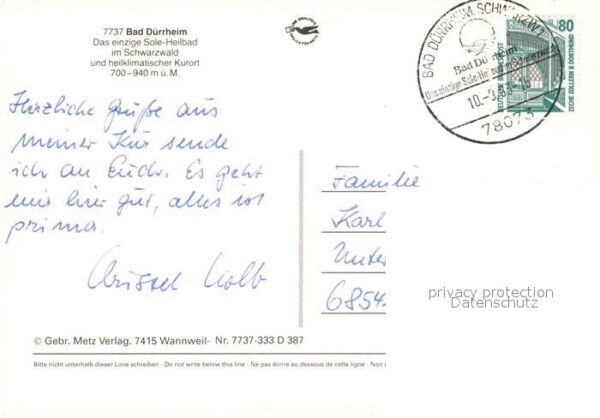 7737 Bad Dürrheim
Das einzige Sole-Heilbad
im Schwarzwald
und heilklimatischer Kurort
700–940 m ü. M.
BAD DÜRRHEIM, SCHWARZW 1
Bad Dürrheim
Das einzige Sole-Heilbad im Schwarzwald
78073
80
DEUTSCHE BUNDESPOST
ZECHE ZOLLERN II DORTMUND
Herzliche Grüße aus
meiner Kur sende
ich an Euch. Es geht
mir hier gut, alles ist
prima.
Kolb
Familie
Karl
Unter
6854.
privacy protection
Datenschutz
© Gebr. Metz Verlag. 7415 Wannweil- Nr. 7737-333 D 387
Bitte nicht unterhalb dieser Linie schreiben - Do not write below this line - Ne pas écrire au dessous de cette ligne - Non